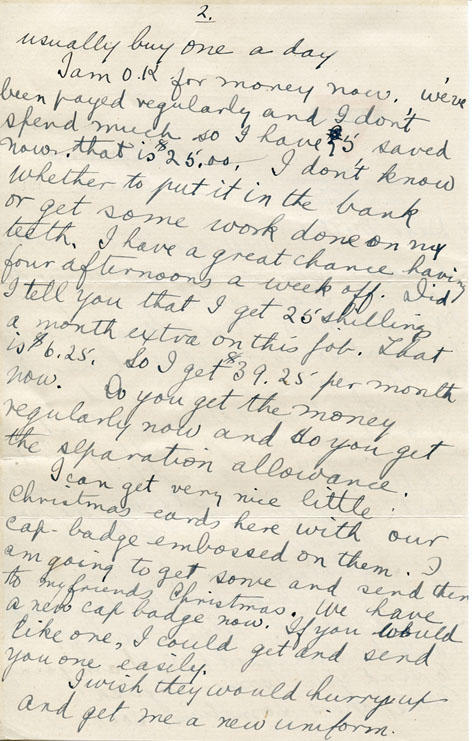 2.
usually buy one a day
I am O.K for money now. We've
been payed regularly and I don't
spend much so I have £5 saved
now. that is $25.00. I don't know
whether to put it in the bank
or get some work done on my
teeth. I have a great chance having
four afternoons a week off. Did
I tell you that I get 25 shilling
a month extra on this job. That
is $6.25. So I get $39.25 per month
now. Do you get the money
regularly now and do you get
the separation allowance.
I can get very nice little
Christmas cards here with our
cap-badge embossed on them. I
am going to get some and send them
to my friends Christmas. We have
a new cap badge now. If you would
like one, I could get and send
you one easily.
I wish they would hurry up
and get me a new uniform.